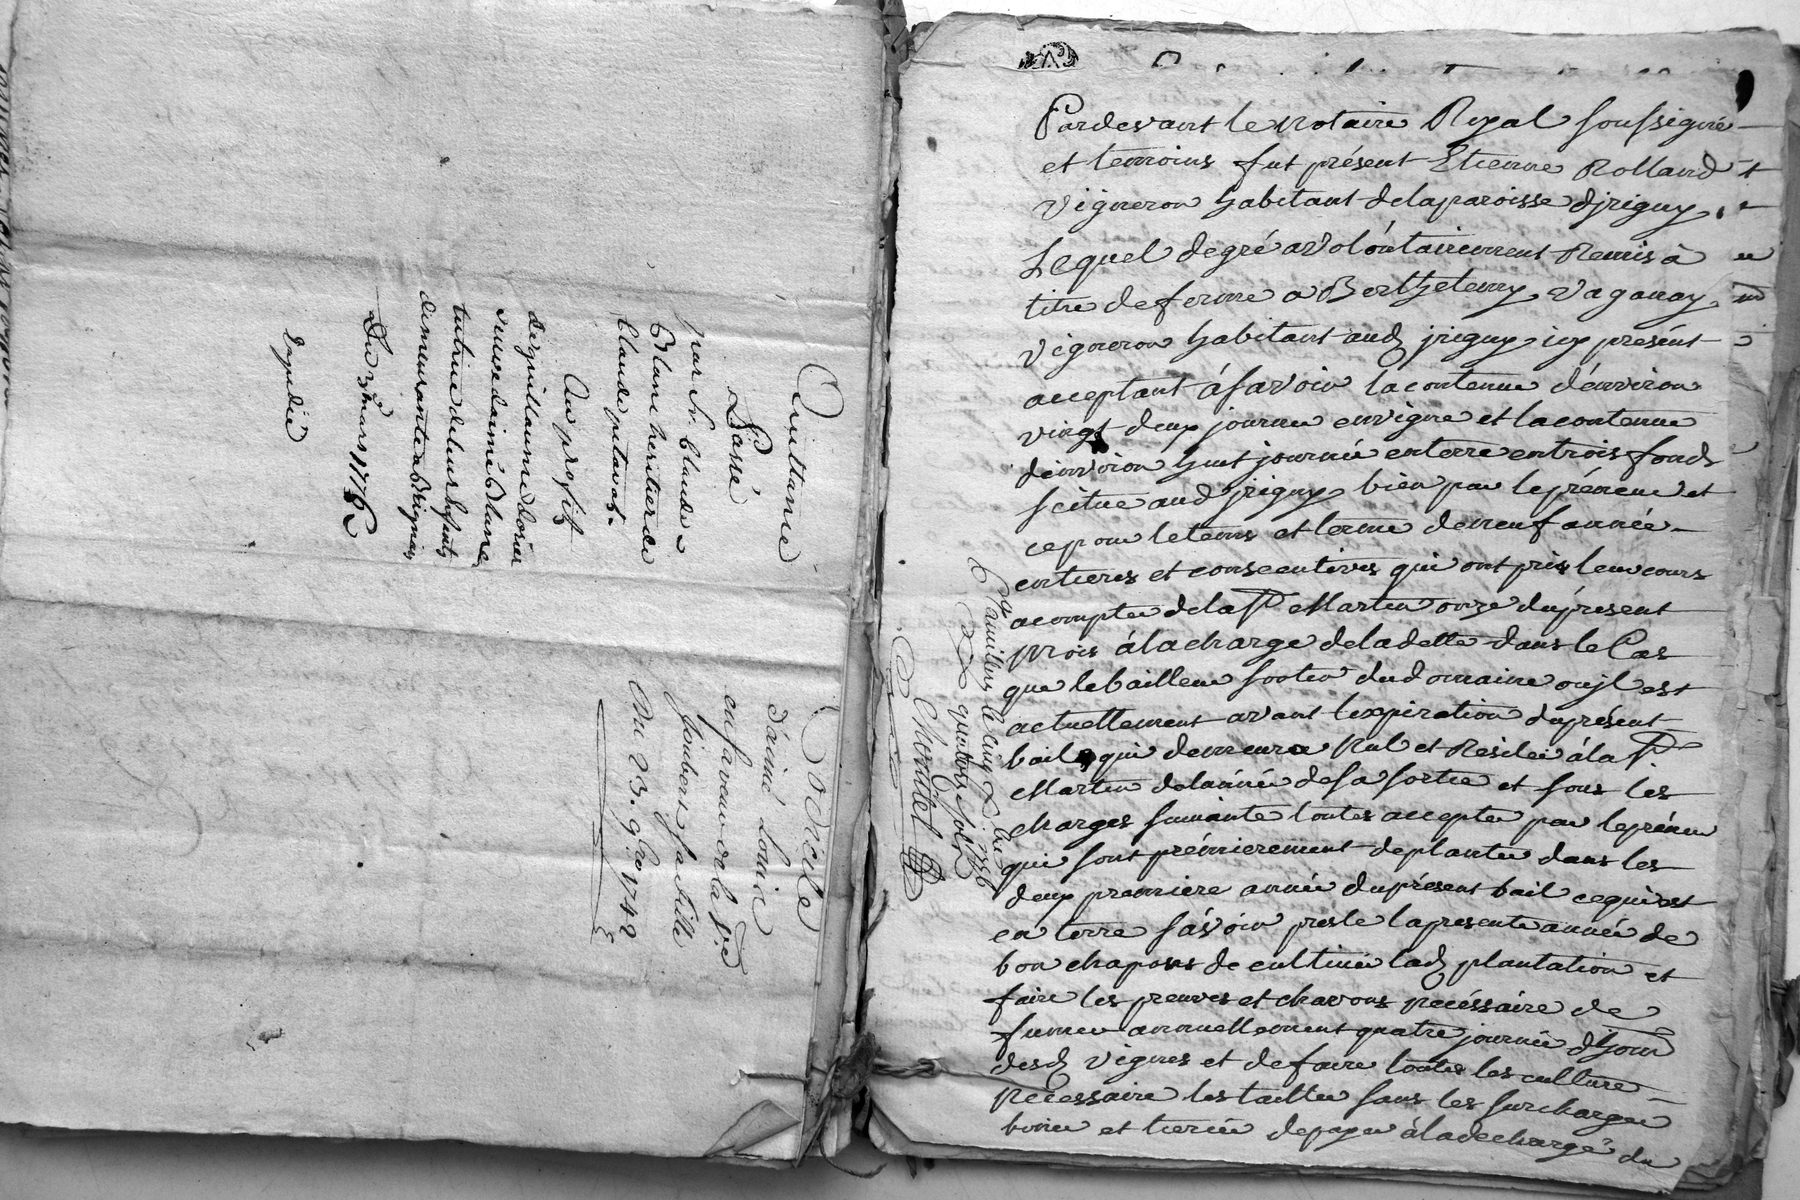 Quittance
Passé
par Sr. Claude
Blanc heritier de
Claude putavot
Au profit
de guillaumine dorier
veuve daimé Blanc
tutrine de leurs Enfants
demeurante a Brignais
Du 3e mars 1776
Expedié
d'aimé Louis
en faveur de la Ve
Joubert sa fille
Du 23. 9bre 1742
le cinq Xbre 1776
quatorze sols
Chondel
Pardevant le notaire Royal soussigné
et temoins fut présent Etienne Rolland
vigneron habitant de la paroisse d'jrigny,
Lequel de gré a volontairement Remis à
titre de ferme a Berthelemy Vaganay
vigneron habitant aud jrigny icy présent
acceptant á savoir la contenue d'énviron
vingt deux journée en vigne et la contenue
d'énviron huit journée en terre en trois fonds
scitue aud jrigny bien par le préneur et
ce pour le tems et terme de neuf année
entieres et consecutives qui ont pris leur cours
a compter de la St Martin onze du présent
mois á la charge de ladette dans le Cas
que le bailleur sortir du domaine ou jl est
actuellement avant lexpiration du présent
bail qui demeurera Nul et Resilié á la St
Martin de lannée de sa sortie et sous les
charges suivante toutes accepter par le préneur
qui sont prémierement de planter dans les
deux premiere année du présent bail ce qui est
en terre sávoir preste la presente année de
bon chapons de cultiver lad plantation et
faire les preuves et chavons necéssaire de
fumer annuellement quatre journée d'hom
desd vignes et de faire toutes les culture
necessaire les tailler sans les surcharger
biner et tiercer de payer á la decharge du